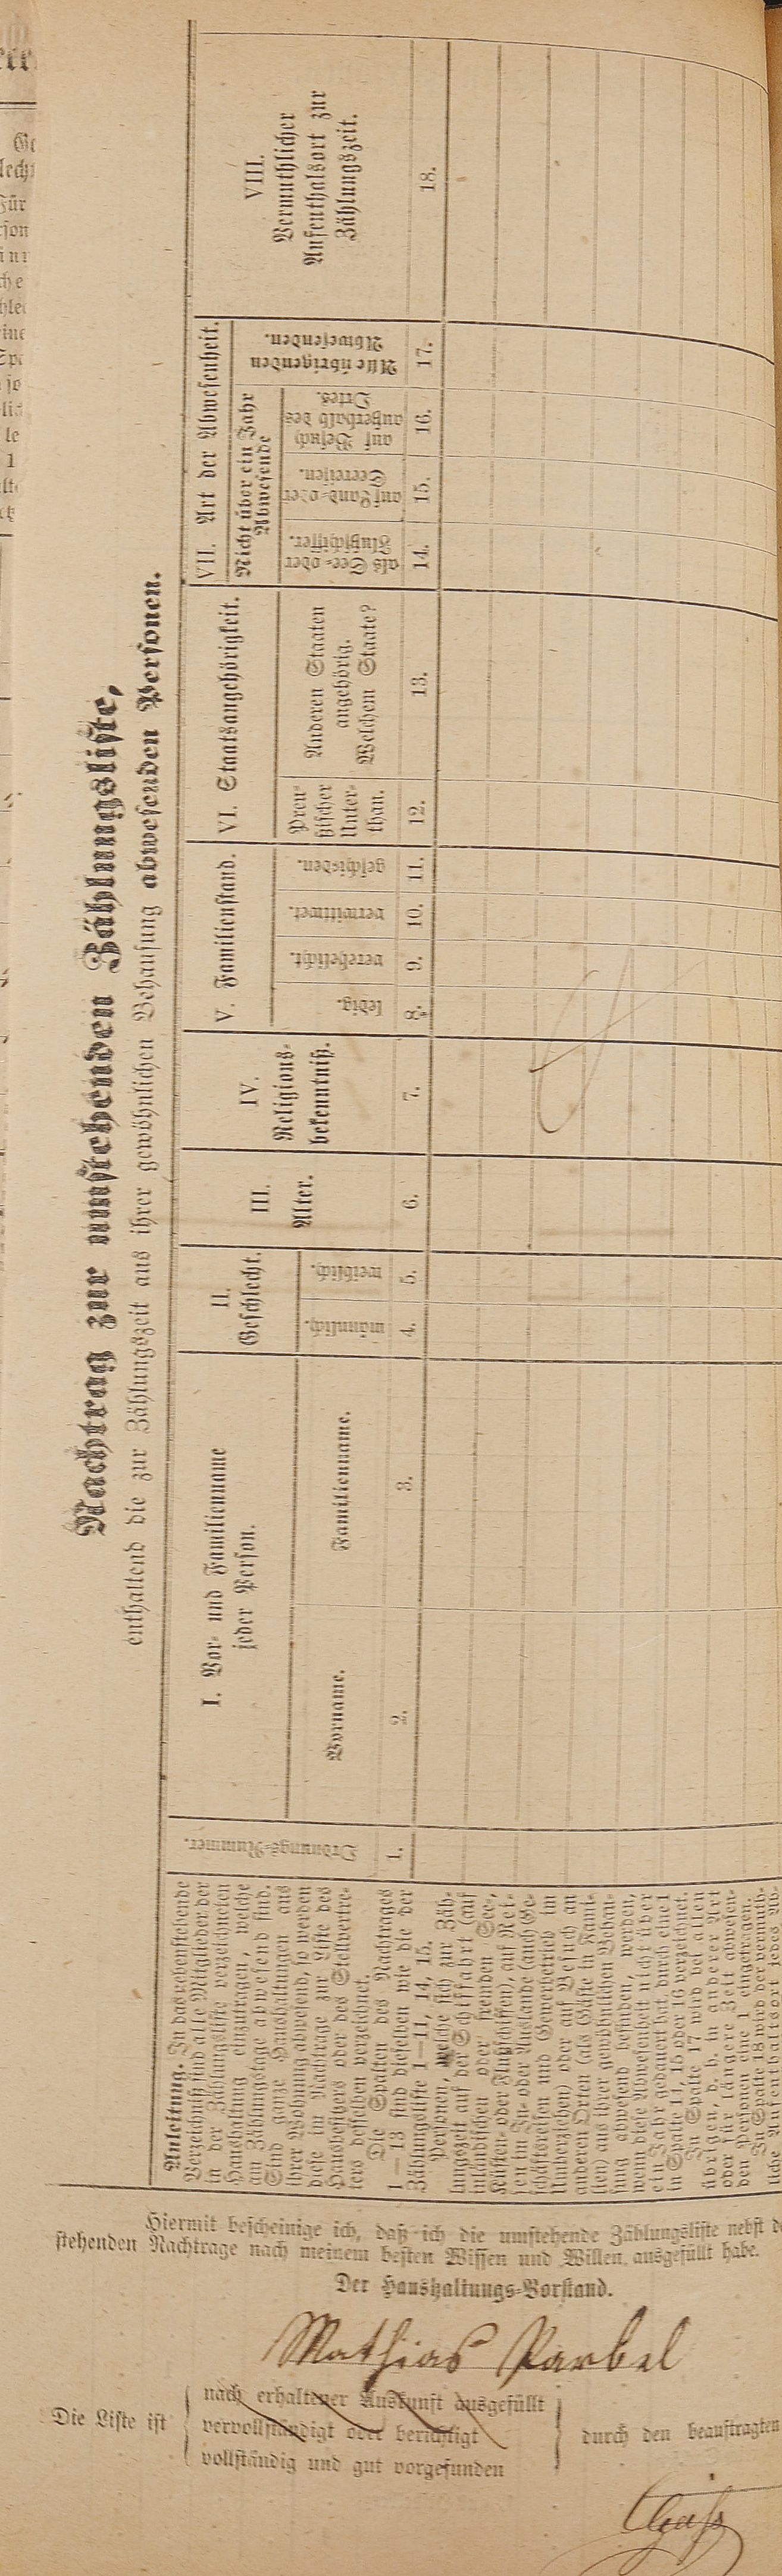 Nachtrag zur umstehenden Zählungsliste,
enthaltend die zur Zählungszeit aus ihrer gewöhnlichen Behausung abwesenden Personen.
Anleitung. In das nebenstehende
Verzeichniß sind alle Mitglieder der
in der Zählungsliste verzeichneten
Haushaltung einzutragen, welche
am Zählungstage abwesend sind.
Sind ganze Haushaltungen aus
ihrer Wohnung abwesend, so werden
diese im Nachtrage zur Liste des
Hausbesitzers oder des Stellvertre-
ters desselben verzeichnet.
Die Spalten des Nachtrages
1—13 sind dieselben wie die der
Zählungsliste 1—11, 14, 15.
Personen, welche sich zur Zäh-
lungszeit auf der Schifffahrt (auf
inländischen oder fremden See-,
Küsten- oder Flußschiffen), auf Rei-
sen im In- oder Auslande (auch Ge-
schäftsreisen und Gewerbetrieb im
Umherziehen) oder auf Besuch an
anderen Orten (als Gäste in Fami-
lien) aus ihrer gewöhnlichen Behau-
sung abwesend befinden, werden,
wenn diese Abwesenheit nicht über
ein Jahr gedauert hat, durch eine 1
in Spalte 14, 15 oder 16 verzeichnet.
In Spalte 17 wird bei allen
übrigen, d. h. in anderer Art
oder für längere Zeit abwesen-
den Personen eine 1 eingetragen.
In Spalte 18 wird der vermuth-
liche Aufenthaltsort jedes Ab-
Ordnungs-Nummer.
1.
I. Vor- und Familienname
jeder Person.
Vorname.
2.
Familienname.
3.
II.
Geschlecht.
männlich.
4.
weiblich.
5.
III.
Alter.
6.
IV.
Religions-
bekenntniß.
7.
V. Familienstand.
ledig.
8.
verehelicht.
9.
verwittwet.
10.
geschieden.
11.
VI. Staatsangehörigkeit.
Preu-
ßischer
Unter-
than.
12.
Anderen Staaten
angehörig.
Welchem Staate?
13.
VII. Art der Abwesenheit.
Nicht über ein Jahr
Abwesende
als See- oder
Flußschiffer.
14.
auf Land- oder
Seereisen.
15.
auf Besuch
außerhalb des
Ortes.
16.
Alle übrigenden
Abwesenden.
17.
VIII.
Vermuthlicher
Aufenthalsort zur
Zählungszeit.
18.
Hiermit bescheinige ich, daß ich die umstehende Zählungsliste nebst
stehenden Nachtrage nach meinem besten Wissen und Willen ausgefüllt habe.
Der Haushaltungs-Vorstand.
Mathias Parbel
Die Liste ist
nach erhaltener Auskunft ausgefüllt
vervollständigt oder berichtigt
vollständig und gut vorgefunden
durch den beauftragten